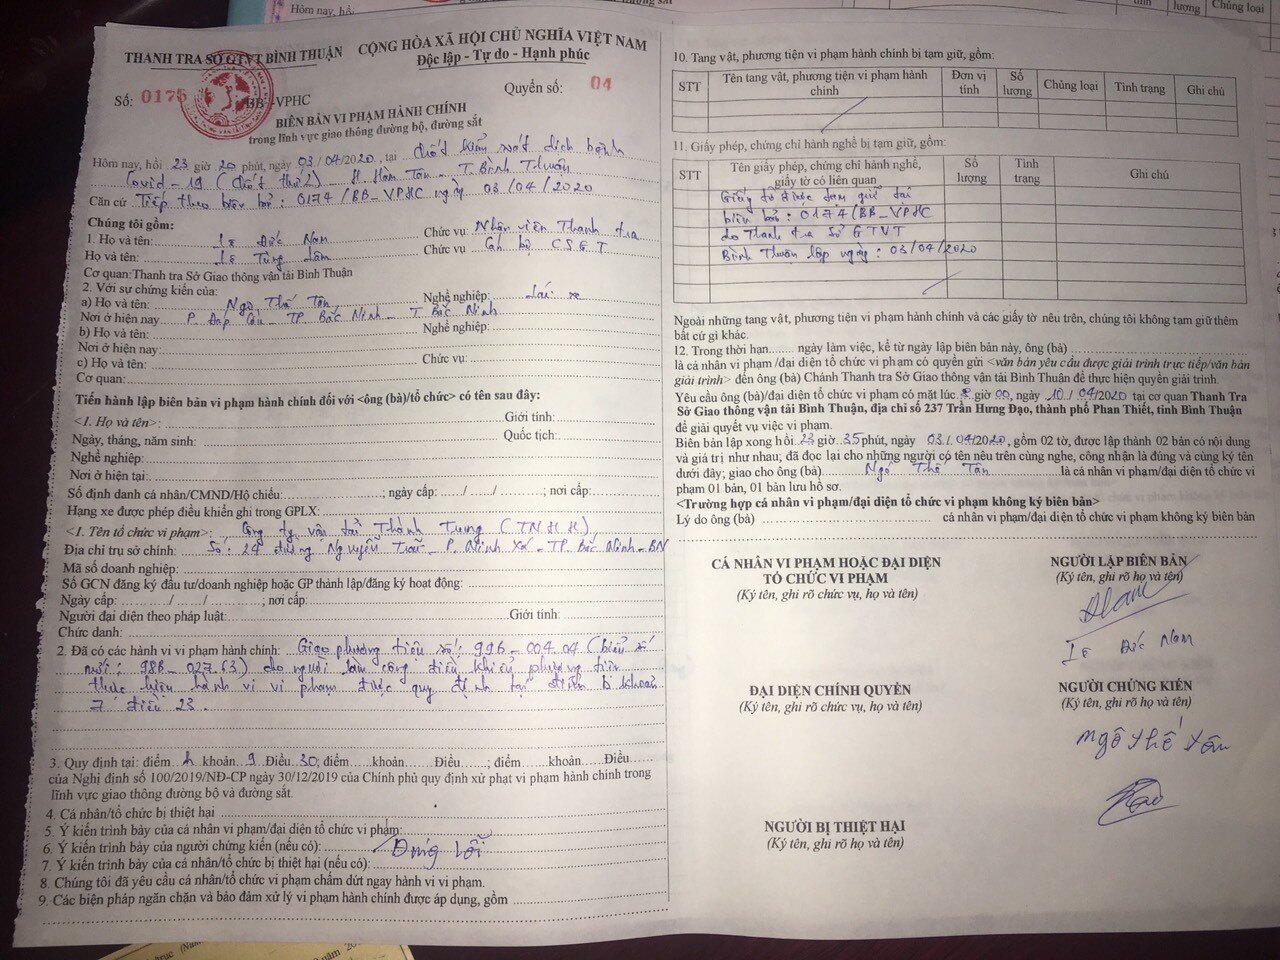 Hôm nay, hồi
THANH TRA SỞ GTVT BÌNH THUẬN
CỘNG HÒA XÃ HỘI CHỦ NGHĨA VIỆT NAM
Độc lập - Tự do - Hạnh phúc
Số: 0175 BB-VPHC
Quyển số: 04
BIÊN BẢN VI PHẠM HÀNH CHÍNH
trong lĩnh vực giao thông đường bộ, đường sắt
Hôm nay, hồi 23 giờ 20 phút, ngày 03/04/2020, tại Chốt kiểm soát dịch bệnh
Covid-19 (chốt thứ 2) - H. Hàm Tân - T. Bình Thuận
Căn cứ Tiếp theo biên bản: 0174/BB-VPHC ngày 03/04/2020
Chúng tôi gồm:
1. Họ và tên: Lê Đức Nam Chức vụ: Nhân viên Thanh tra
Họ và tên: Lê Tùng Lâm Chức vụ Cán bộ CSGT
Cơ quan: Thanh tra Sở Giao thông vận tải Bình Thuận
2. Với sự chứng kiến của:
a) Họ và tên: Ngô Thế Tân Nghề nghiệp: Lái xe
Nơi ở hiện nay P. Đáp Cầu - TP Bắc Ninh - T. Bắc Ninh
b) Họ và tên: Nghề nghiệp:
Nơi ở hiện nay:
c) Họ và tên: Chức vụ:
Cơ quan:
Tiến hành lập biên bản vi phạm hành chính đối với <ông (bà)/tổ chức> có tên sau đây:
<1. Họ và tên>: Giới tính:
Ngày, tháng, năm sinh: Quốc tịch:
Nghề nghiệp:
Nơi ở hiện tại:
Số định danh cá nhân/CMND/Hộ chiếu: ; ngày cấp: / / ; nơi cấp:
Hạng xe được phép điều khiển ghi trong GPLX:
<1. Tên tổ chức vi phạm>: Công ty vận tải Thành Trung (TNHH)
Địa chỉ trụ sở chính: Số: 24 đường Nguyễn Trãi - P. Ninh Xá - TP. Bắc Ninh - BN
Mã số doanh nghiệp:
Số GCN đăng ký đầu tư/doanh nghiệp hoặc GP thành lập/đăng ký hoạt động:
Ngày cấp: / / ; nơi cấp:
Người đại diện theo pháp luật: Giới tính:
Chức danh:
2. Đã có các hành vi vi phạm hành chính: Giao phương tiện số: 99B-004.04 (biển số
mới: 98B-027.63) cho người làm công điều khiển phương tiện
thực hiện hành vi vi phạm được quy định tại điểm b khoản
7 điều 23.
3. Quy định tại: điểm h khoản 9 Điều 30; điểm khoản Điều ; điểm khoản Điều
của Nghị định số 100/2019/NĐ-CP ngày 30/12/2019 của Chính phủ quy định xử phạt vi phạm hành chính trong
lĩnh vực giao thông đường bộ và đường sắt.
4. Cá nhân/tổ chức bị thiệt hại
5. Ý kiến trình bày của cá nhân vi phạm/đại diện tổ chức vi phạm:
6. Ý kiến trình bày của người chứng kiến (nếu có): Đúng lỗi
7. Ý kiến trình bày của cá nhân/tổ chức bị thiệt hại (nếu có):
8. Chúng tôi đã yêu cầu cá nhân/tổ chức vi phạm chấm dứt ngay hành vi vi phạm.
9. Các biện pháp ngăn chặn và bảo đảm xử lý vi phạm hành chính được áp dụng, gồm
10. Tang vật, phương tiện vi phạm hành chính bị tạm giữ, gồm:
STT Tên tang vật, phương tiện vi phạm hành chính Đơn vị tính Số lượng Chủng loại Tình trạng Ghi chú
11. Giấy phép, chứng chỉ hành nghề bị tạm giữ, gồm:
STT Tên giấy phép, chứng chỉ hành nghề, giấy tờ có liên quan Số lượng Tình trạng Ghi chú
Giấy tờ được tạm giữ tại
biên bản: 0174/BB-VPHC
do Thanh tra Sở GTVT
Bình Thuận lập ngày: 03/04/2020
Ngoài những tang vật, phương tiện vi phạm hành chính và các giấy tờ nêu trên, chúng tôi không tạm giữ thêm
bất cứ gì khác.
12. Trong thời hạn ngày làm việc, kể từ ngày lập biên bản này, ông (bà)
là cá nhân vi phạm/đại diện tổ chức vi phạm có quyền gửi <văn bản yêu cầu được giải trình trực tiếp/văn bản
giải trình> đến ông (bà) Chánh Thanh tra Sở Giao thông vận tải Bình Thuận để thực hiện quyền giải trình.
Yêu cầu ông (bà)/đại diện tổ chức vi phạm có mặt lúc 8 giờ 00, ngày 10/04/2020 tại cơ quan Thanh Tra
Sở Giao thông vận tải Bình Thuận, địa chỉ số 237 Trần Hưng Đạo, thành phố Phan Thiết, tỉnh Bình Thuận
để giải quyết vụ việc vi phạm.
Biên bản lập xong hồi 23 giờ 35 phút, ngày 03/04/2020, gồm 02 tờ, được lập thành 02 bản có nội dung
và giá trị như nhau; đã đọc lại cho những người có tên nêu trên cùng nghe, công nhận là đúng và cùng ký tên
dưới đây; giao cho ông (bà) Ngô Thế Tân là cá nhân vi phạm/đại diện tổ chức vi
phạm 01 bản, 01 bản lưu hồ sơ.
<Trường hợp cá nhân vi phạm/đại diện tổ chức vi phạm không ký biên bản>
Lý do ông (bà) cá nhân vi phạm/đại diện tổ chức vi phạm không ký biên bản
CÁ NHÂN VI PHẠM HOẶC ĐẠI DIỆN
TỔ CHỨC VI PHẠM
(Ký tên, ghi rõ chức vụ, họ và tên)
NGƯỜI LẬP BIÊN BẢN
(Ký tên, ghi rõ họ và tên)
Lê Đức Nam
ĐẠI DIỆN CHÍNH QUYỀN
(Ký tên, ghi rõ chức vụ, họ và tên)
NGƯỜI CHỨNG KIẾN
(Ký tên, ghi rõ họ và tên)
Ngô Thế Tân
NGƯỜI BỊ THIỆT HẠI
(Ký tên, ghi rõ họ và tên)